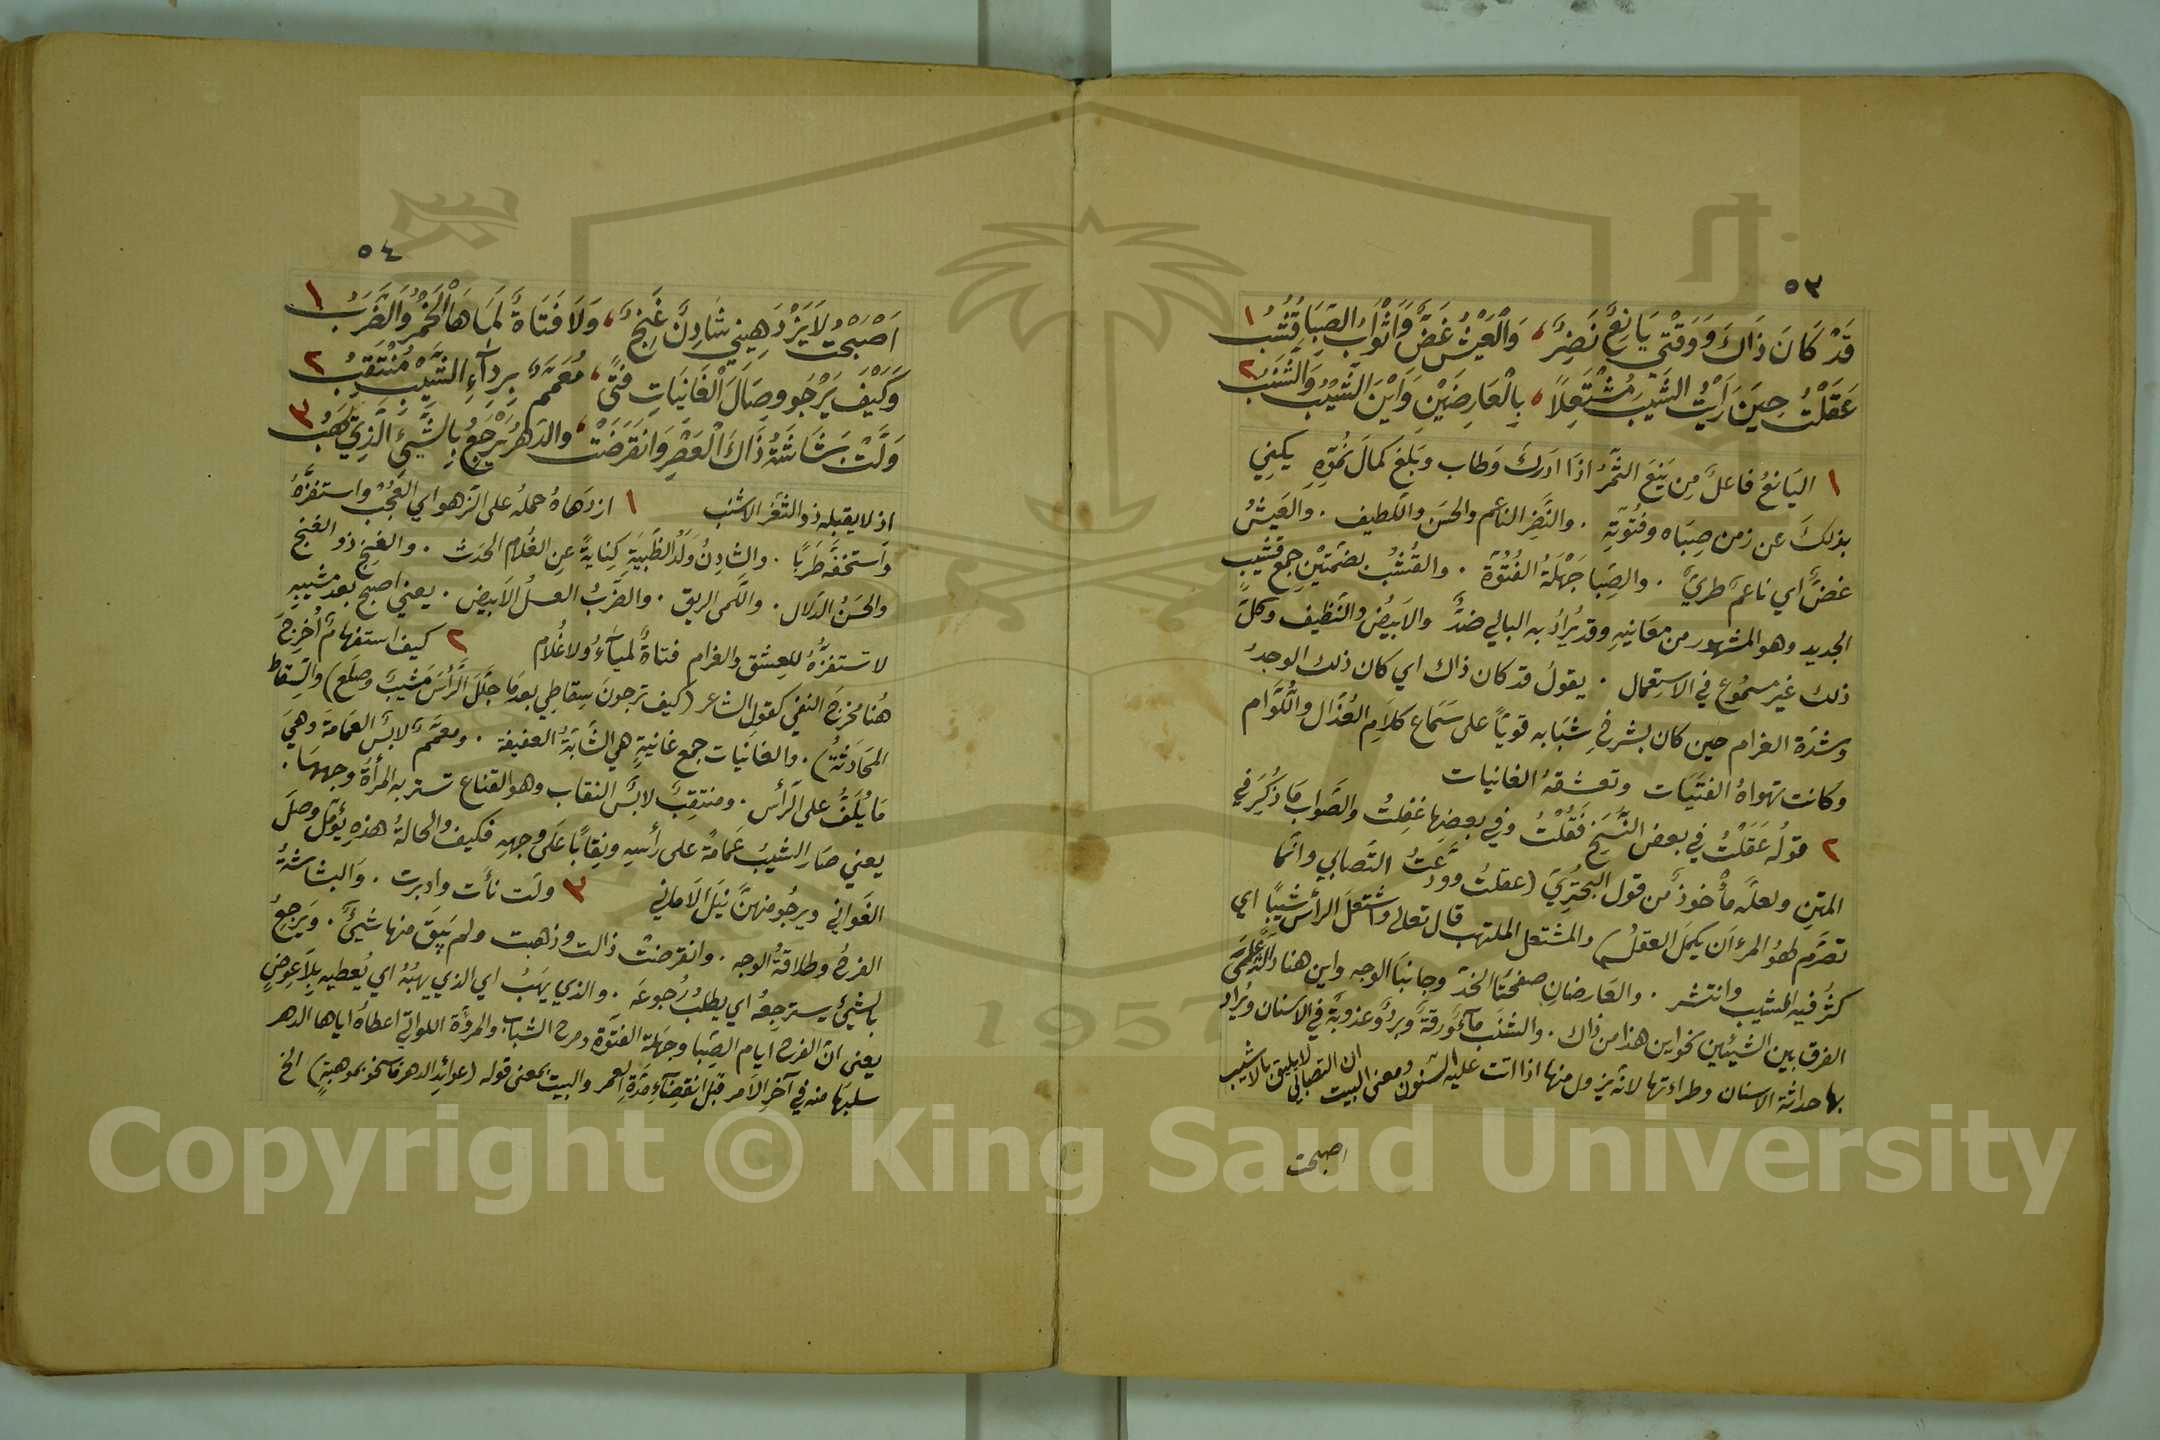 ٥٣
قَدْ كَانَ ذَاكَ وَوَقْتِي يَانِعٌ نَضِرٌ، وَالْعَيْشُ غَضٌّ وَأَثْوَابُ الصِّبَا قُشُبُ ١
عَقَلْتُ حِينَ رَأَيْتُ الشَّيْبَ مُشْتَعِلًا، بِالْعَارِضَيْنِ وَأَيْنَ الشَّيْبُ وَالشَّنَبُ ٢
١ اليَانعُ فاعلٌ مِن يَنَعَ الثَّمَرُ اذَا ادَركَ وَطاب وبَلغَ كمالَ نُمُوّهِ يكنِي
بذلكَ عن زمن صِبَاه وفُتُوّتِهِ . والنَّضِر الناعم والحسَن واللَّطيف . والعَيشُ
غضٌّ اي ناعمٌ طريٌّ . والصِّبا جَهْلَةُ الفُتُوّة . والقُشُب بضمّتَيْنِ جمع قشيبٍ
الجديد وهو المشهور من معَانيهِ وقد يُرَادُ به البالي ضدٌّ والابيَضُ والنَّظيف وكلّ
ذلك غير مسمُوع في الاستِعمال . يقولُ قد كان ذاك اي كان ذلك الوجدُ
وشدّة الغرام حين كان بشرخِ شِبَابه قويّاً على سَمَاع كلامِ العُذّال واللُّوَّام
وكانت تهواهُ الفتَيَات وتعشقهُ الغانيات
٢ قولُه عَقَلْتُ في بعض النُّسَخِ فَقُلْتُ وفي بعضِها غفِلتُ والصَّواب مَا ذُكِرَ في
المتن ولعلّه مأخوذٌ من قول البحتُرِيّ (عقلتُ وودّعتُ التَّصابي وانّما
تصرّم لهوُ المرءِ ان يكمَل العقلُ) والمشتعل الملتهب قال تعالى واشتعَلَ الرأسُ شَيبًا اي
كثُر فيه المشيب وانتشر . والعَارضانِ صفحَتَا الخدّ وجانبَا الوجه واين هنا دالّة على
الفرق بين الشيئين نحو اين هذا من ذاك . والشنَب مآءٌ ورقةٌ وبردٌ وعذوبةٌ في الاسنان ويُراد
بها حداثة الاسنان وطراءتها لانه يزول منها اذا اتت عليه السّنون ومعنى البيت ان التصابي لا يليق بالاشيب
اصبحت
٥٤
اَصْبَحْتُ لاَ يَزْدَهِينِي شَادِنٌ غَنِجٌ، وَلَا فَتَاةٌ لَمَاهَا الْخَمْرُ وَالضَّرَبُ ١
وَكَيْفَ يَرْجُو وِصَالَ الْغَانِيَاتِ فَتًى، مُعَمَّمٌ بِرِدَآءِ الشَّيْبِ مُنْتَقِبُ ٢
وَلَّتْ بَشَاشَةُ ذَاكَ الْعَصْرِ وَانْقَرَضَتْ، وَالدَهرُ يَرْجِعُ بِالشَّيْءِ الَّذِي يَهَبُ ٣
اذ لا يقبله ذو الثغر الاشنب ١ ازدَهاهُ حمله على الزّهو اي العُجْب واستفزّهُ
واستَخفّه طَرَبًا . والشادِنُ ولَدُ الظَبيَةِ كِنايةً عنِ الغُلام الحدَث . والغَنِج ذو الغنج
والحسَنُ الدّلال . واللَّمى الريق . والضَّرَبُ العسلُ الابيَض . يعني اصبح بعد مشيبهِ
لا تستفزُّهُ للعِشق والغرام فتاةٌ لميآءُ ولا غُلام ٢ كيف استفهامٌ اُخرِجَ
هُنا مخرَج النفي كقول الشاعر (كيف ترجونَ سِقاطي بعدَما جلّلَ الرَّأسَ مَشيبٌ وصلَع) والسِّقاط
المحَادَثَةُ) . والغَانَيات جمع غانيةٍ هي الشَّابّةُ العفيفة . ومعمّمٌ لابسُ العمَامة وهيَ
مَا يُلَفُّ على الرّأس . ومنتقِبٌ لابسُ النقاب وهو القناع تستر به المرأةُ وجهَهَا .
يعني صَار الشيبُ عَمامةً على رأسهِ ونِقَابًا عَلى وجههِ فكيف والحالةُ هذه يؤمّل وصلَ
الغَواني ويرجُو منهنّ نَيلَ الاماني ٣ ولَت نأت وادبرت . والبشاشةُ
الفرحُ وطلاقةُ الوجه . وانقرضَتْ زالت وذهبت ولم يَبقَ منها شيئٌ . ويَرجِعُ
بالشيئِ يسترجِعُه اي يطلبُ رُجوعَه . والذي يَهَبُ اي الذي يهبُه اي يُعطيه بِلاَ عِوضٍ
يعني انّ الفرح ايام الصِّبا وجَهَلة الفتوّة ومرح الشباب والمروّة اللواتي اعطاه اياها الدهر
سلبَها منه في آخر الامر قبل انقضآءِ مدّةِ العمر والبيت بمعنى قوله (عوائِد الدهر ما سخو بموهبةٍ) الخ